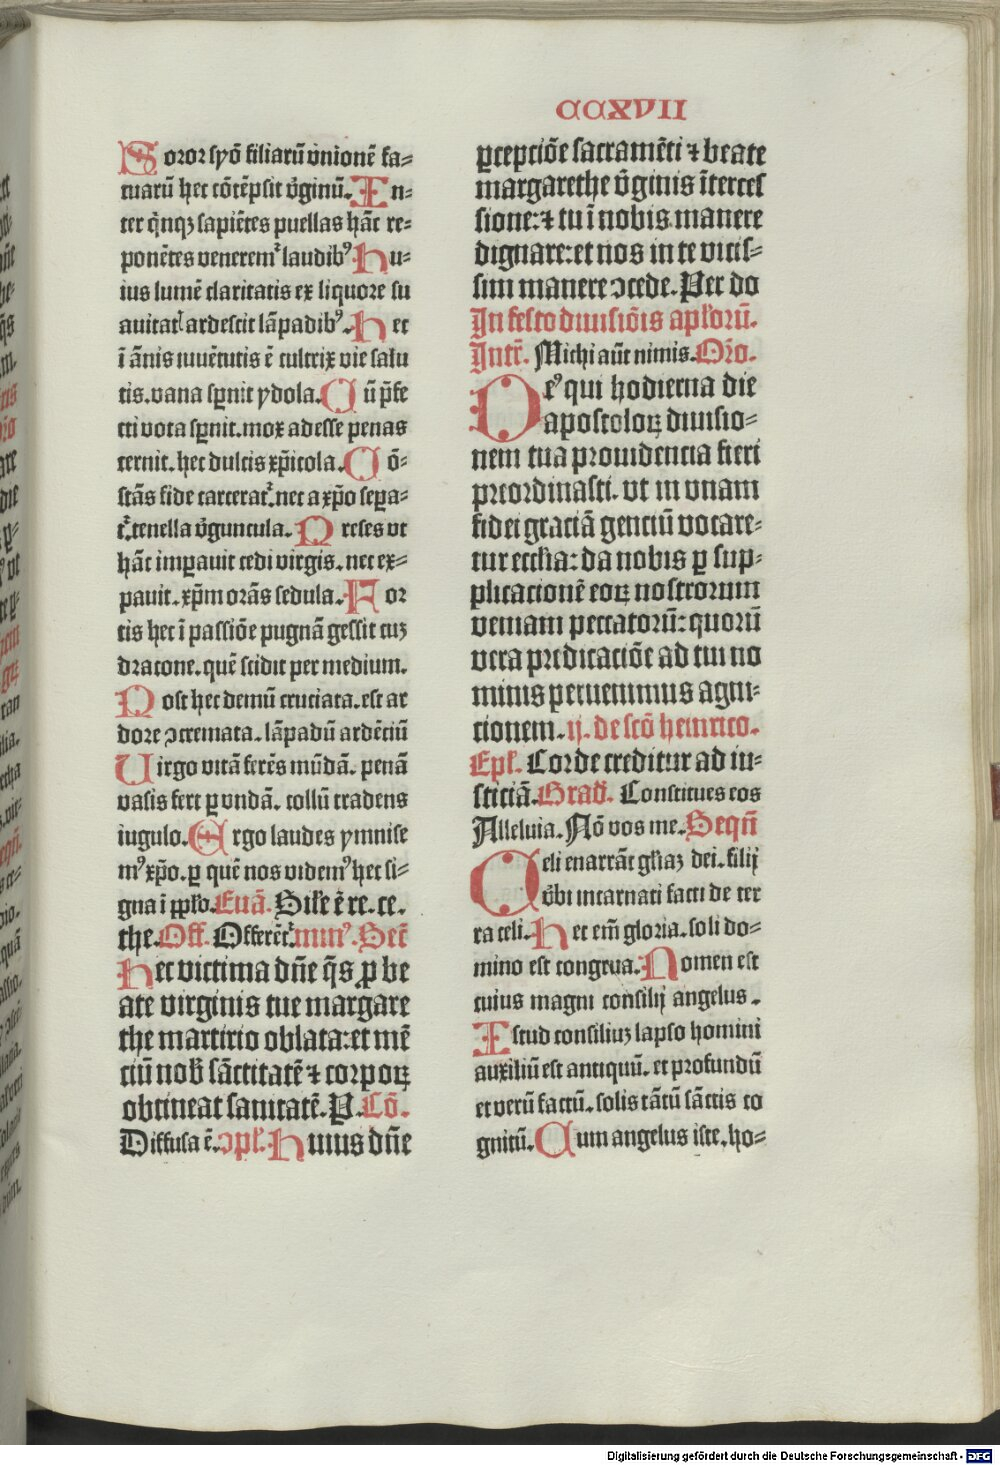 CCXVII
Soror syō filiarū vnionē fa=
marū hec cōtēpsit v̄ginū. In=
ter q̄nqꝫ sapiētes puellas hāc re=
ponētes veneremᷣ laudibꝰ Hu=
ius lumē claritatis ex liquore su
auitatꝭ ardescit lāpadibꝰ. Hec
ī ānis iuuētutis ē cultrix vie salu
tis. vana sꝑnit ydola. Cū p̄fe
cti vota sꝑnit. mox adesse penas
cernit. hec dulcis xp̄icola. Cō=
stās fide carceratᷣ. nec a xp̄o sepa=
tᷣ. tenella v̄guncula. Preses vt
hāc impauit cedi virgis. nec ex=
pauit. xp̄m orās sedula. For
tis hec ī passiōe pugnā gessit cuꝫ
dracone. quē scidit per medium.
Post hec demū cruciata. est ar
dore ↄcremata. lāpadū ardētiū
Uirgo vitā ferēs mūdā. penā
vasis fert ꝑ vndā. collū tradens
iugulo. Ergo laudes ymnise
mꝰ xp̄o. ꝑ quē nos videmꝰ hec si=
gna ī pp̄lo. Euā. Sil'e ē re. ce.
the. Off. Offerētᷣ minꝰ. Secr̄
Hec victima dn̄e q̄s ꝓ be
ate virginis tue margare
the martirio oblata: et mē
tiū nob̄ sāctitatē ⁊ corpoꝝ
obtineat sanitatē. P. Cō.
Diffusa ē. ↄpl'. Huius dn̄e
ꝑcepciōe sacramēti ⁊ beate
margarethe v̄ginis ītercef
sione: ⁊ tu ī nobis manere
dignare: et nos in te vicis=
sim manere ↄcede. Per do
In festo diuisiōis apl'orū.
Intr̄. Michi aūt nimis. Or̄o.
Deꝰ qui hodierna die
apostoloꝝ diuisio=
nem tua prouidencia fieri
preordinasti. vt in vnam
fidei graciā genciū vocare=
tur eccl'ia: da nobis ꝑ sup=
plicacionē eoꝝ nostrorum
veniam peccatorū: quorū
vera predicaciōe ad tui no
minis peruenimus agni=
cionem. ij. de scō heinrico.
Epl'. Corde creditur ad iu=
sticiā. Grad̄. Constitues eos
Alleluia. Nō vos me. Sequn̄
Celi enarrāt gl'iaꝫ dei. filij
v̄bi incarnati facti de ter
ra celi. Hec em̄ gloria. soli do=
mino est congrua. Nomen est
cuius magni consilij angelus.
Istud consiliuꝫ lapso homini
auxiliū est antiquū. et profundū
et verū factū. solis tātū sāctis co
gnitū. Cum angelus iste. ho=
Digitalisierung gefördert durch die Deutsche Forschungsgemeinschaft - DFG